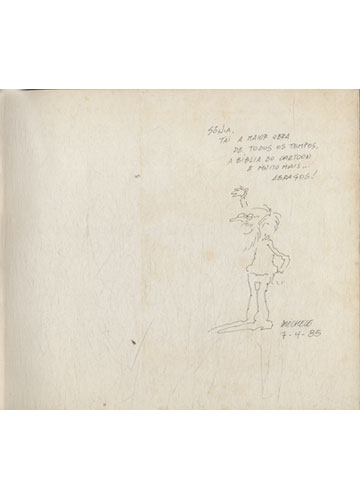 SÔNIA,
TAÍ A MAIOR OBRA
DE TODOS OS TEMPOS,
A BÍBLIA DO CARTOON
E MUITO MAIS...
ABRAÇOS!
7-4-85